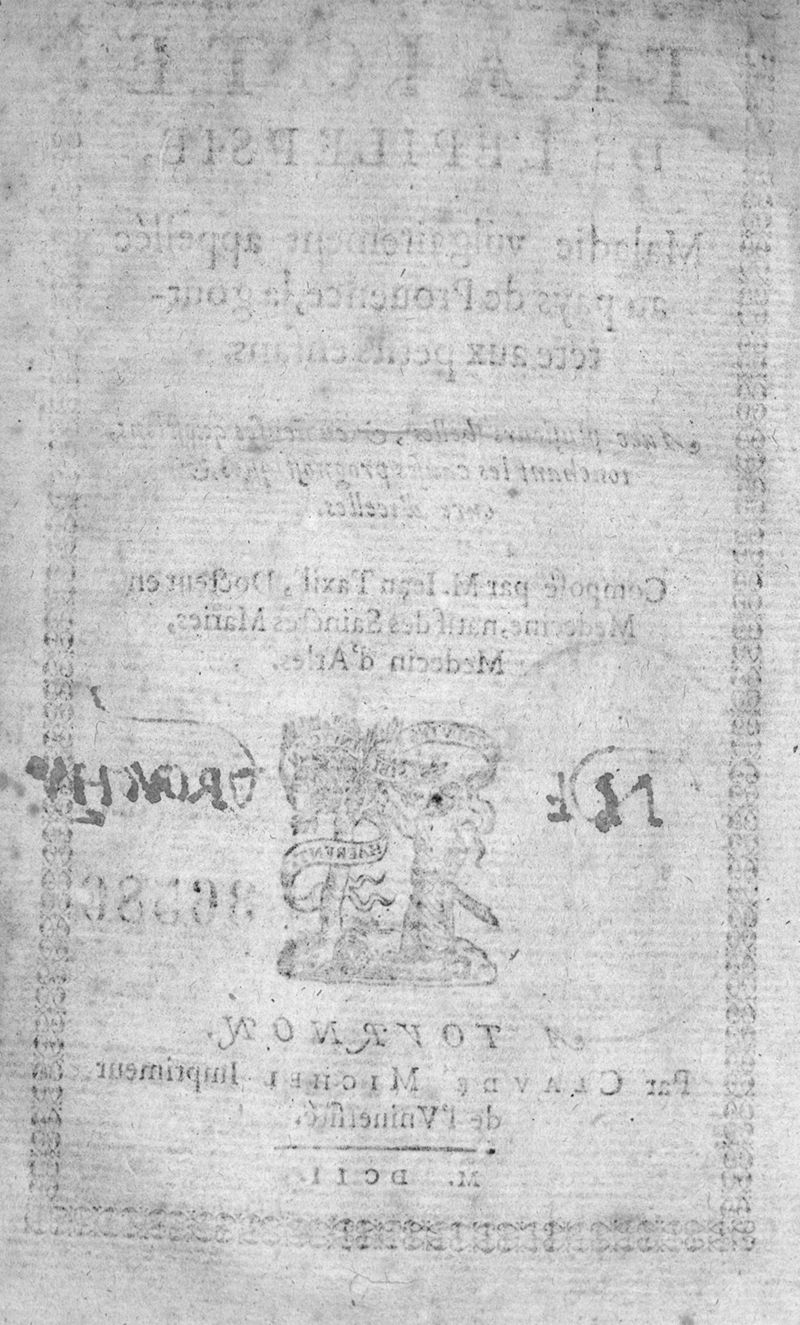 TRAICTE
DE L'EPILEPSIE,
Maladie vulgairement appellée
au pays de Prouence, la gout-
tete aux petits enfans.
Auec plusieurs belles, & curieuses questions,
touchant les causes prognostiques, &
cure d'icelles.
Composé par M. Iean Taxil, Docteur en
Medecine, natif des Sainctes Maries,
Medecin d'Arles.
HAERENT
A TOVRNON,
Par CLAVDE MICHEL Imprimeur
de l'Vniuersité.
M. DCII.